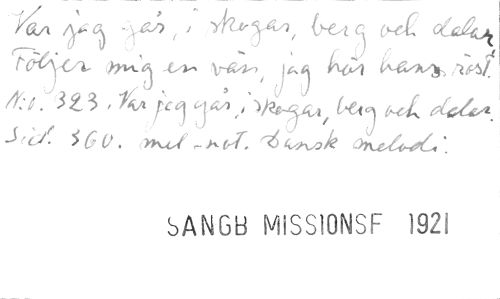 Var jag går, i skogar, berg och dalar,
Följer mig en vän, jag hör hans röst.
N:o. 323. Var jag går, i skogar, berg och dalar.
Sid. 360. mel-not. Dansk melodi.
SANGB MISSIONSF 1921